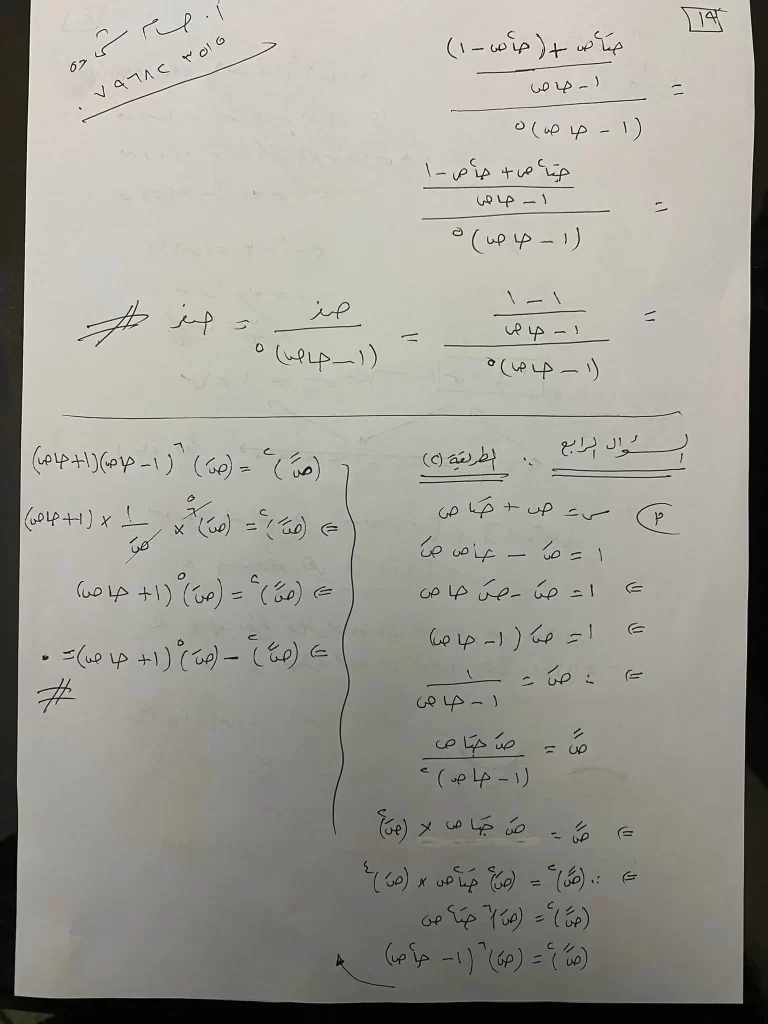 ١٩
أ. حسام
٠٧٩٦٨٢٣٥١٥
= (جتا٢ص + (جا٢ص - ١) / ١ - جاص) / (١ - جاص)٥
= (جتا٢ص + جا٢ص - ١ / ١ - جاص) / (١ - جاص)٥
= (١ - ١ / ١ - جاص) / (١ - جاص)٥ = صفر / (١ - جاص)٥ = صفر #
السؤال الرابع : الطريقة (٢)
٢) س = ص + جتاص
١ = صَ - جاص صَ
⇐ ١ = صَ - صَ جاص
⇐ ١ = صَ (١ - جاص)
⇐ ∴ صَ = ١ / ١ - جاص
صً = صَ جتاص / (١ - جاص)٢
⇐ صً = صَ جتاص × (صَ)٢
⇐ ∴ (صً)٢ = (صَ)٢ جتا٢ص × (صَ)٤
(صً)٢ = (صَ)٦ جتا٢ص
(صً)٢ = (صَ)٦ (١ - جا٢ص)
(صً)٢ = (صَ)٦ (١ - جاص)(١ + جاص)
⇐ (صً)٢ = (صَ)٦ ٥ × ١ / صَ × (١ + جاص)
⇐ (صً)٢ = (صَ)٥ (١ + جاص)
⇐ (صً)٢ - (صَ)٥ (١ + جاص) = ٠
#